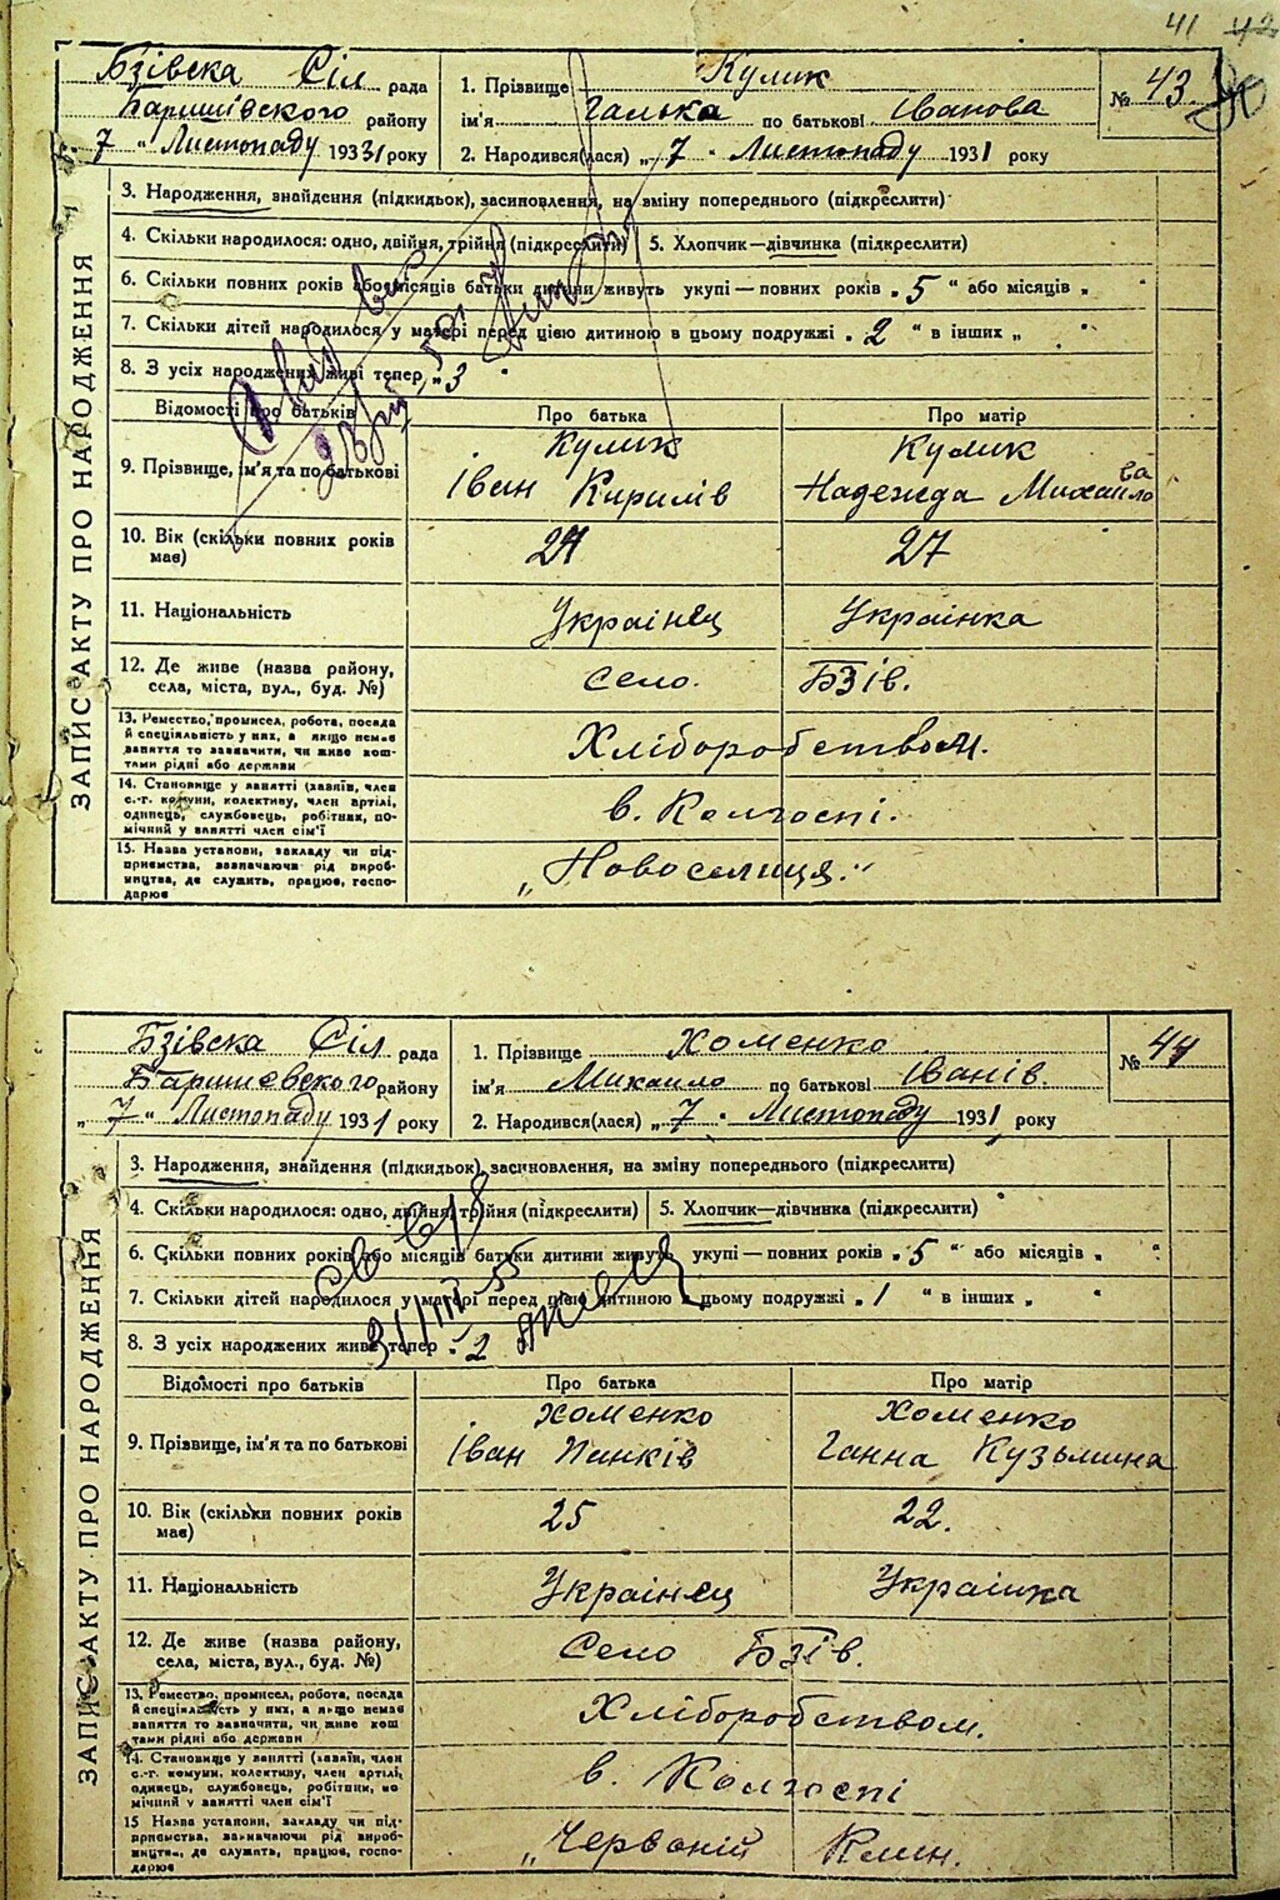 41 42
Бзівска Сіл рада
Баришівского району
" 7 " Листопаду 1931 року
1. Прізвище Кулик
ім'я Галька по батькові Іванова
2. Народився(лася) „ 7 " Листопаду 1931 року
№ 43.
ЗАПИС АКТУ ПРО НАРОДЖЕННЯ
3. Народження, знайдення (підкидьок), засиновлення, на зміну попереднього (підкреслити)
4. Скільки народилося: одно, двійня, трійня (підкреслити) 5. Хлопчик—дівчинка (підкреслити)
6. Скільки повних років або місяців батьки дитини живуть укупі — повних років „ 5 " або місяців „ "
7. Скільки дітей народилося у матері перед цією дитиною в цьому подружжі „ 2 " в інших „ "
8. З усіх народжених живі тепер „ 3 "
Відомості про батьків Про батька Про матір
9. Прізвище, ім'я та по батькові
Кулик Кулик
Іван Кирилів Надежда Михайлова
10. Вік (скільки повних років має) 27 27
11. Національність Украінец Украінка
12. Де живе (назва району,
села, міста, вул., буд. №)
село. Бзів.
13. Ремество, промисел, робота, посада
й спеціяльність у них, а якщо немає
заняття то зазначити, чи живе кош-
тами рідні або держави
Хліборобством.
14. Становище у занятті (хазяїн, член
с.-г. комуни, колективу, член артілі,
одинець, службовець, робітник, по-
мічний у занятті член сім'ї
в. Колгоспі.
15. Назва установи, закладу чи під-
приємства, зазначаючи рід вироб-
ництва, де служить, працює, госпо-
дарює
„Новоселиця."
Бзівска Сіл рада
Баришевского району
„ 7 " Листопаду 1931 року
1. Прізвище Хоменко
ім'я Михаило по батькові Іванів.
2. Народився(лася) „ 7 " Листопаду 1931 року
№ 44
ЗАПИС АКТУ ПРО НАРОДЖЕННЯ
3. Народження, знайдення (підкидьок), засиновлення, на зміну попереднього (підкреслити)
4. Скільки народилося: одно, двійня, трійня (підкреслити) 5. Хлопчик—дівчинка (підкреслити)
6. Скільки повних років або місяців батьки дитини живуть укупі — повних років „ 5 " або місяців „ "
7. Скільки дітей народилося у матері перед цією дитиною в цьому подружжі „ 1 " в інших „ "
8. З усіх народжених живі тепер „ 2
Відомості про батьків Про батька Про матір
9. Прізвище, ім'я та по батькові
Хоменко Хоменко
Іван Панків Ганна Кузьмина
10. Вік (скільки повних років має) 25 22.
11. Національність Украінец Украінка
12. Де живе (назва району,
села, міста, вул., буд. №)
Село Бзів.
13. Ремество, промисел, робота, посада
й спеціяльність у них, а якщо немає
заняття то зазначити, чи живе кош
тами рідні або держави
Хліборобством.
14. Становище у занятті (хазяїн, член
с.-г. комуни, колективу, член артілі,
одинець, службовець, робітник, по
мічний у занятті член сім'ї
в. Колгоспі
15 Назва установи, закладу чи під-
приємства, зазначаючи рід вироб-
ництва, де служить, працює, госпо-
дарює
„Червоній Клин.